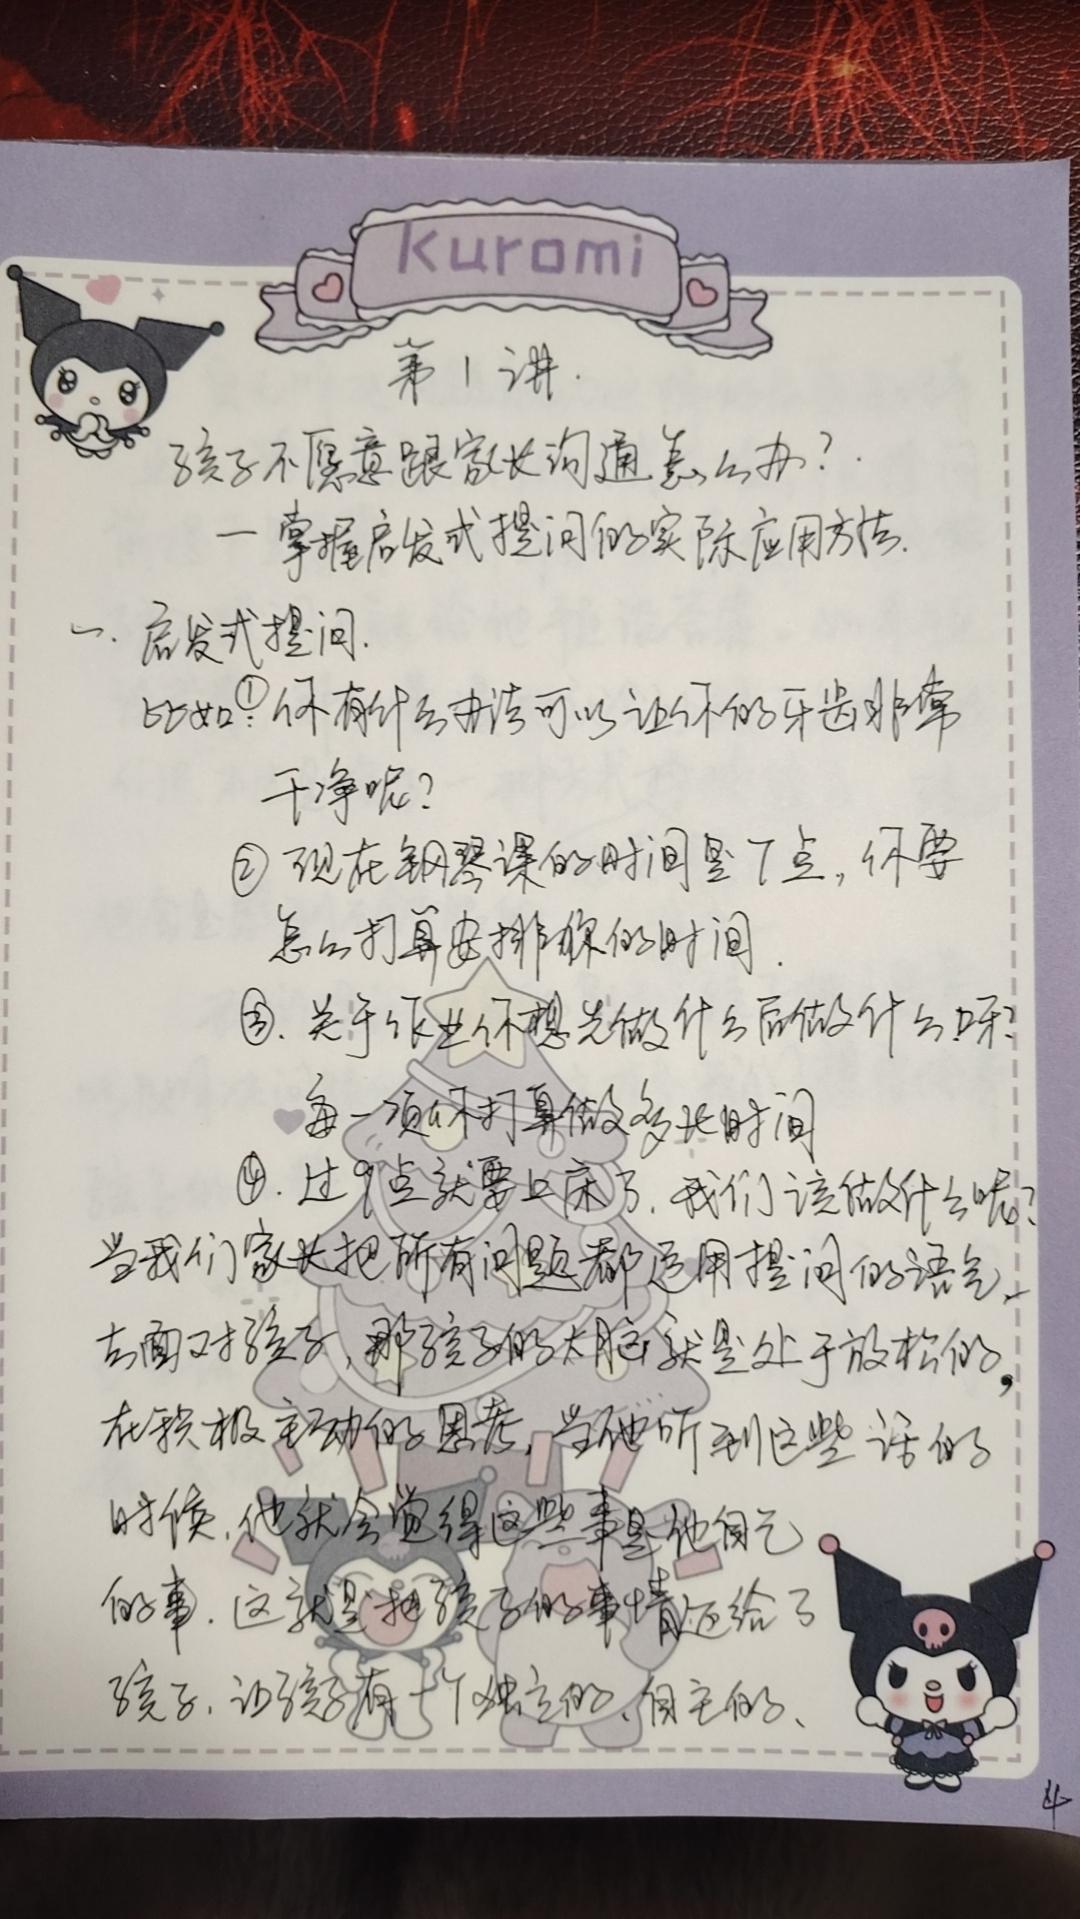 Kuromi
第1讲.
孩子不愿意跟家长沟通怎么办?.
一掌握启发式提问的实际应用方法.
一.启发式提问.
比如:①你有什么办法可以让你的牙齿非常
干净呢?
②现在钢琴课的时间是7点,你要
怎么打算安排你的时间.
③.关于作业你想先做什么后做什么呀?
每一项你打算做多长时间
④.过9点就要上床了.我们该做什么呢?
当我们家长把所有问题都运用提问的语气、
去面对孩子,那孩子的大脑就是处于放松的,
在积极主动的思考,当他听到这些话的
时候,他就会觉得这些事是他自己
的事.这就是把孩子的事情还给了
孩子.让孩子有一个独立的、自主的、
4